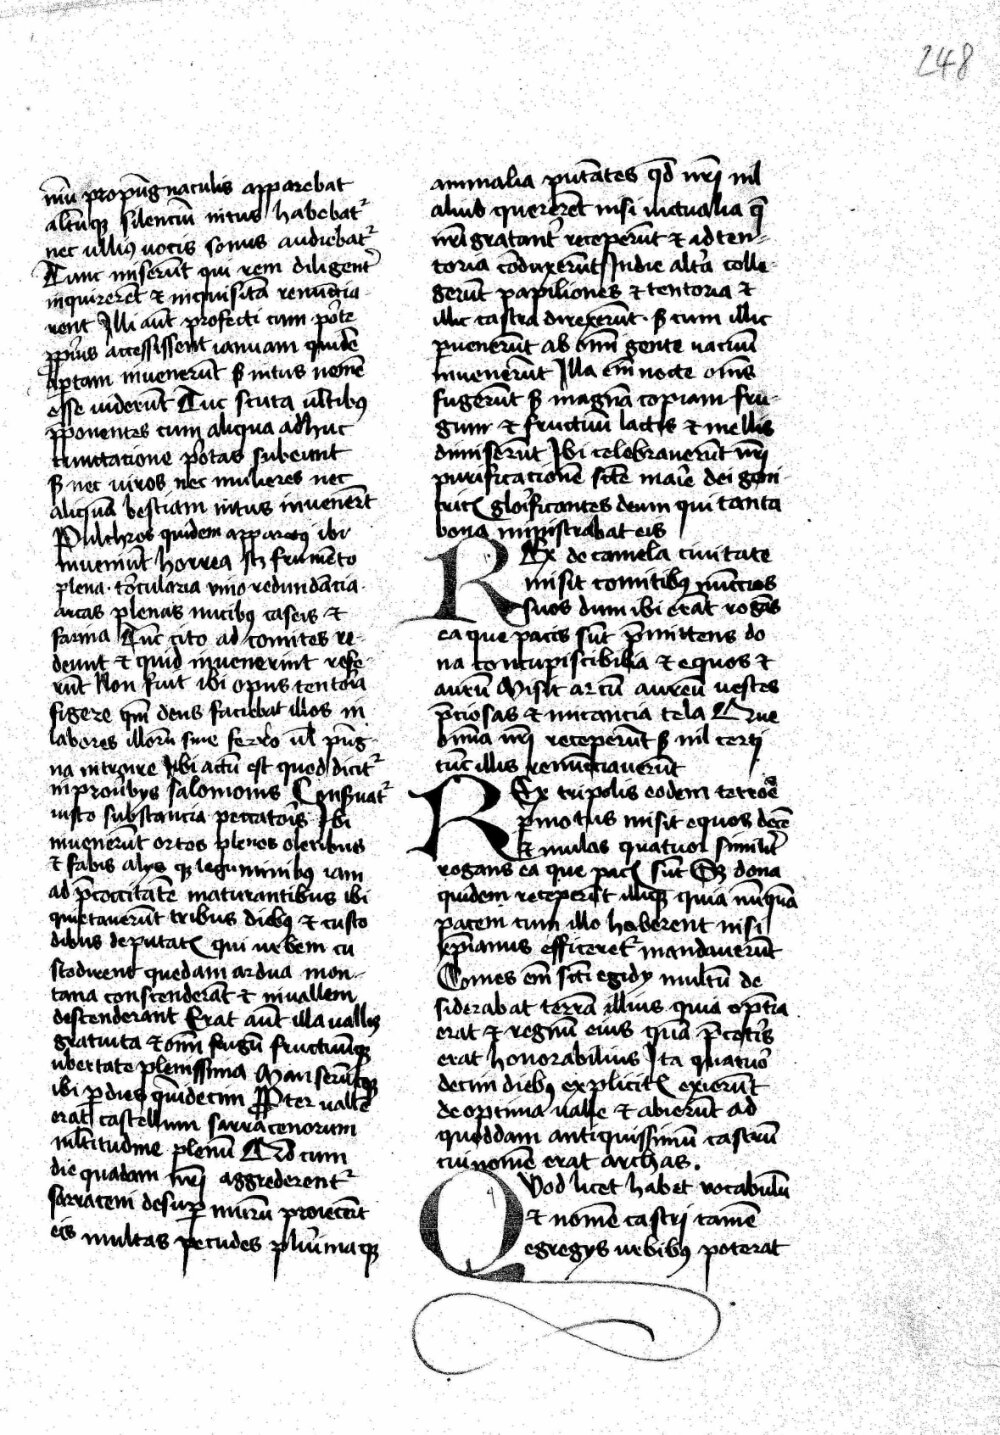 248
niū propūgnaculis apparebat
altūq; silenciū intus habebat᷑
nec ulliꝰ uocis sonus audiebat᷑
Tunc miserūt qui rem diligent᷑
inquirerēt ⁊ inquisitā renūcia-
rent Illi aūt profecti cum porte
ꝓpius accessissent ianuam quidē
aptam inuenerūt sꝫ intus neminē
esse uiderūt Tūc scuta ultibꝰ
ꝓponentes cum aliqua adhuc
cunctatione portas subeunt
sꝫ nec uiros nec mulieres nec
aliquā bestiam intus inuenerūt
Pulchros quidem apparatꝰ ibi
inueniūt horrea scꝫ frumēto
plena torcularia uino redundācia
arcas plenas nucibꝰ caseis ⁊
farina Tūc cito ad comites re-
deunt ⁊ quid inuenerint refe-
rūt Non fuit ibi opus tentoria
figere qm̄ deus faciebat illos in
labores illorū sine ferro ul̄ pūg-
na introire Ubi actū est quod dicit᷑
in prouerbijs salomonis Conseruat᷑
iusto substancia peccatoris Ibi
inuenerūt ortos plenos oleribus
⁊ fabis alijsq; leguminibus iam
ad p̄cocitatē maturantibus ibi
quietauerūt tribus diebꝰ ⁊ custo
dibus deputatꝭ qui urbem cu
stodirent quedam ardua mon-
tana conscenderāt ⁊ in uallem
descenderant Erat aūt illa uallis
gratuita ⁊ om̄i frugū fructuūq;
ubertate plenissima Manserūtq;
ibi ꝑ dies quīdecim Ꝓpter uallē
erat castellum sarracenorum
mltitudine plenū Ad cum
die quadam nr̄i aggrederent᷑
sarraceni desuꝑ murū proiecerūt
eis multas pecudes plurimaq;
animalia putātes qd̄ nr̄i nil
aliud quererēt nisi uictualia q̄
nr̄i gratanter receperūt ⁊ ad ten-
toria cōduxerūt In die alt᷑a colle-
gerūt papiliones ⁊ tentoria ⁊
illic castra direxerūt Sꝫ cum illic
ꝑuenerūt ab om̄i gente uacuū
inuenerūt Illa em̄ nocte om̄s
fugerūt sꝫ magnā copiam fru-
gum ⁊ fructuū lactis ⁊ mellis
dimiserūt Ibi celebrauerūt nr̄i
purificacionē scē marie dei geni-
tricꝭ glorificantes deum qui tanta
bona ministrabat eis
REx de camela ciuitate
misit comitibꝰ nūccios
suos dum ibi erāt rogās
ea que pacis sūt p̄mittens do
na concupiscibilia ⁊ equos ⁊
aurū Misit arcū aureū uestes
p̄ciosas ⁊ micancia tela Que
omīa nr̄i receperūt sꝫ nil certi
tūc illis renūciauerūt
REx tripolis eodem terrore
ꝑmotus misit equos decē
⁊ mulas quatuor similit᷑
rogans ea que pacꝭ sūt Sꝫ dona
quidem receperūt illiusq; quia nūquā
pacem cum illo haberent nisi
xp̄ianus efficeret᷑ mandauerūt
Comes em̄ scī egidij multū de
siderabat terrā illius quia optīa
erat ⁊ regnū eius quā p̄ cet᷑is
erat honorabilius Ita quatuor
decim diebꝰ explicitꝭ exierūt
de optima ualle ⁊ abierūt ad
quoddam antiquissimū castrū
cui nomē erat archas.
QUod licet habet vocabulū
⁊ nomē castri tamē
egregijs urbibꝰ poterat